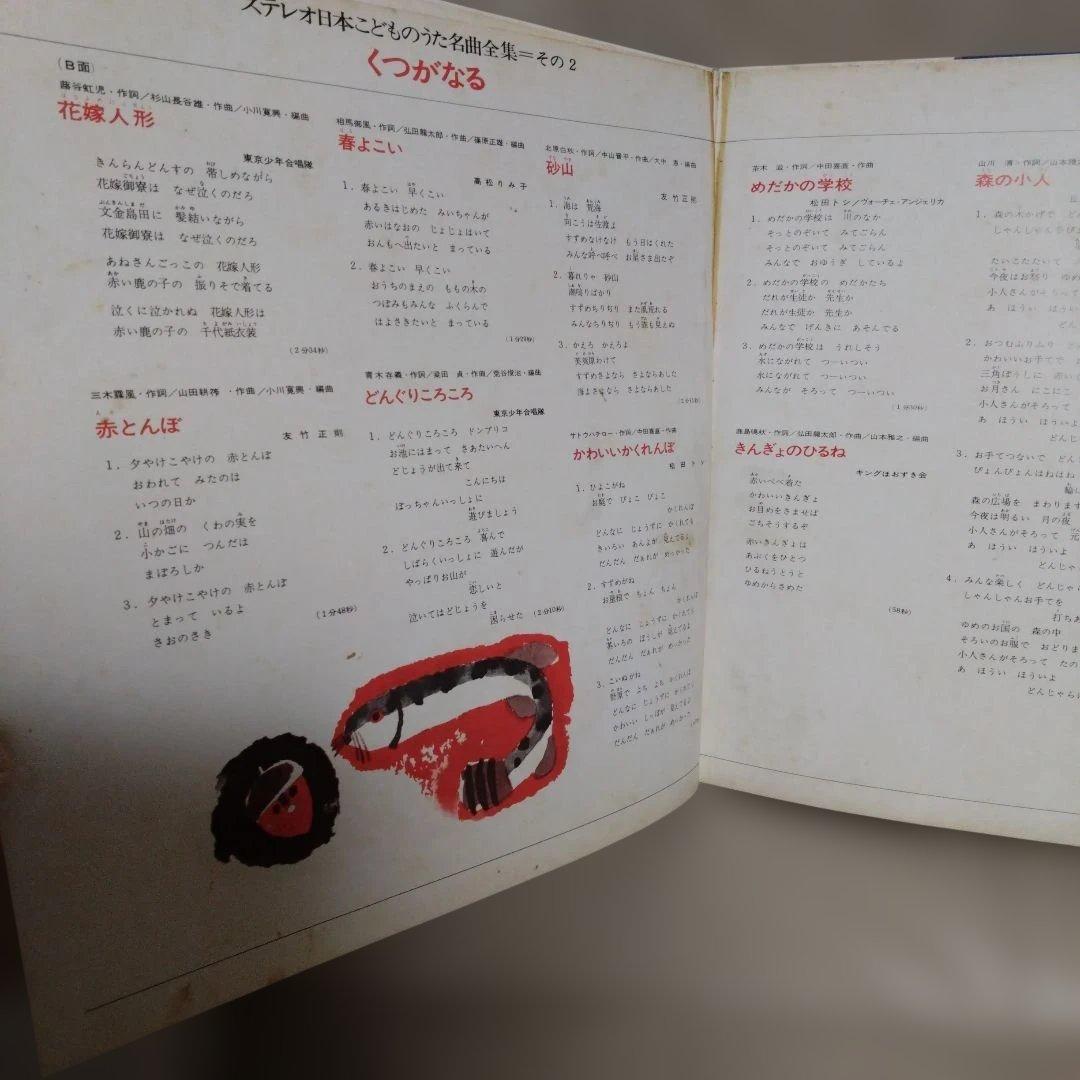 ステレオ日本こどものうた名曲全集=その2
くつがなる
(B面)
蕗谷虹児・作詞/杉山長谷雄・作曲/小川寛興・編曲
花嫁人形
東京少年合唱隊
きんらんどんすの 帯しめながら
花嫁御寮は なぜ泣くのだろ
文金島田に 髪結いながら
花嫁御寮は なぜ泣くのだろ
あねさんごっこの 花嫁人形
赤い鹿の子の 振りそで着てる
泣くに泣かれぬ 花嫁人形は
赤い鹿の子の 千代紙衣装
(2分34秒)
三木露風・作詞/山田耕筰・作曲/小川寛興・編曲
赤とんぼ
友竹正則
1. 夕やけこやけの 赤とんぼ
おわれて みたのは
いつの日か
2. 山の畑の くわの実を
小かごに つんだは
まぼろしか
3. 夕やけこやけの 赤とんぼ
とまって いるよ
さおのさき
(1分48秒)
相馬御風・作詞/弘田龍太郎・作曲/篠原正雄・編曲
春よこい
高松りみ子
1. 春よこい 早くこい
あるきはじめた みいちゃんが
赤いはなおの じょじょはいて
おんもへ出たいと まっている
2. 春よこい 早くこい
おうちのまえの ももの木の
つぼみもみんな ふくらんで
はよさきたいと まっている
(1分29秒)
青木存義・作詞/梁田 貞・作曲/
どんぐりころころ
東京少年合唱隊
1. どんぐりころころ ドンブリコ
お池にはまって さあたいへん
どじょうが出て来て
こんにちは
ぼっちゃんいっしょに
遊びましょう
2. どんぐりころころ 喜んで
しばらくいっしょに 遊んだが
やっぱりお山が
恋しいと
泣いてはどじょうを
困らせた (2分10秒)
北原白秋・作詞/中山晋平・作曲/大中 恩・編曲
砂山
友竹正則
1. 海は 荒海
向こうは佐渡よ
すずめなけなけ もう日はくれた
みんな呼べ呼べ お星さま出たぞ
2. 暮れりゃ 砂山
潮鳴りばかり
すずめちりぢり また風荒れる
みんなちりぢり もう誰も見えぬ
3. かえろ かえろよ
茱萸原わけて
すずめさよなら さよならあした
海よさよなら さよならあした
サトウハチロー・作詞/中田喜直・作曲
かわいいかくれんぼ
松田トシ
1. ひよこがね
お庭で ぴょこ ぴょこ
かくれんぼ
どんなに じょうずに かくれても
きいろい あんよが 見えてるよ
だんだん だあれが めっかった
2. すずめがね
お屋根で ちょん ちょん
かくれんぼ
どんなに じょうずに かくれても
茶いろの ぼうしが 見えてるよ
だんだん だあれが めっかった
3. こいぬがね
野原で よち よち かくれんぼ
どんなに じょうずに かくれても
かわいい しっぽが 見えてるよ
だんだん だあれが めっかった
茶木 滋・作詞/中田喜直・作曲
めだかの学校
松田トシ/ヴォーチェ・アンジェリカ
1. めだかの学校は 川のなか
そっとのぞいて みてごらん
そっとのぞいて みてごらん
みんなで おゆうぎ しているよ
2. めだかの学校の めだかたち
だれが生徒か 先生か
だれが生徒か 先生か
みんなで げんきに あそんでる
3. めだかの学校は うれしそう
水にながれて つーいつい
水にながれて つーいつい
みんなが そろって つーいつい
(1分50秒)
鹿島鳴秋・作詞/弘田龍太郎・作曲/山本雅之・編曲
きんぎょのひるね
キングほおずき会
赤いべべ着た
かわいいきんぎょ
お目めをさませば
ごちそうするぞ
赤いきんぎょは
あぶくをひとつ
ひるねうとうと
ゆめからさめた
(58秒)
山川 清・作詞/山本雅
森の小人
1. 森の木かげで ど
しゃんしゃん
たいこたたいて
今夜はお祭り ゆめ
小人さんがそろって
あ ほうい ほうい
2. おつむふりふり
かわいいお手て
三角ぼうしに 赤い
お月さん にこにこ
小人さんがそろって
あ ほうい ほういよ
どん
3. お手てつないで どん
ぴょんぴょんはねはね
森の広場を まわります
今夜は明るい 月の夜
小人さんがそろって 元
あ ほうい ほういよ
どんじゃ
4. みんな楽しく どんじゃ
しゃんしゃんお手てを
打ちあ
ゆめのお国の 森の中
そろいのお服で おどりま
小人さんがそろって たの
あ ほうい ほういよ
どんじゃら